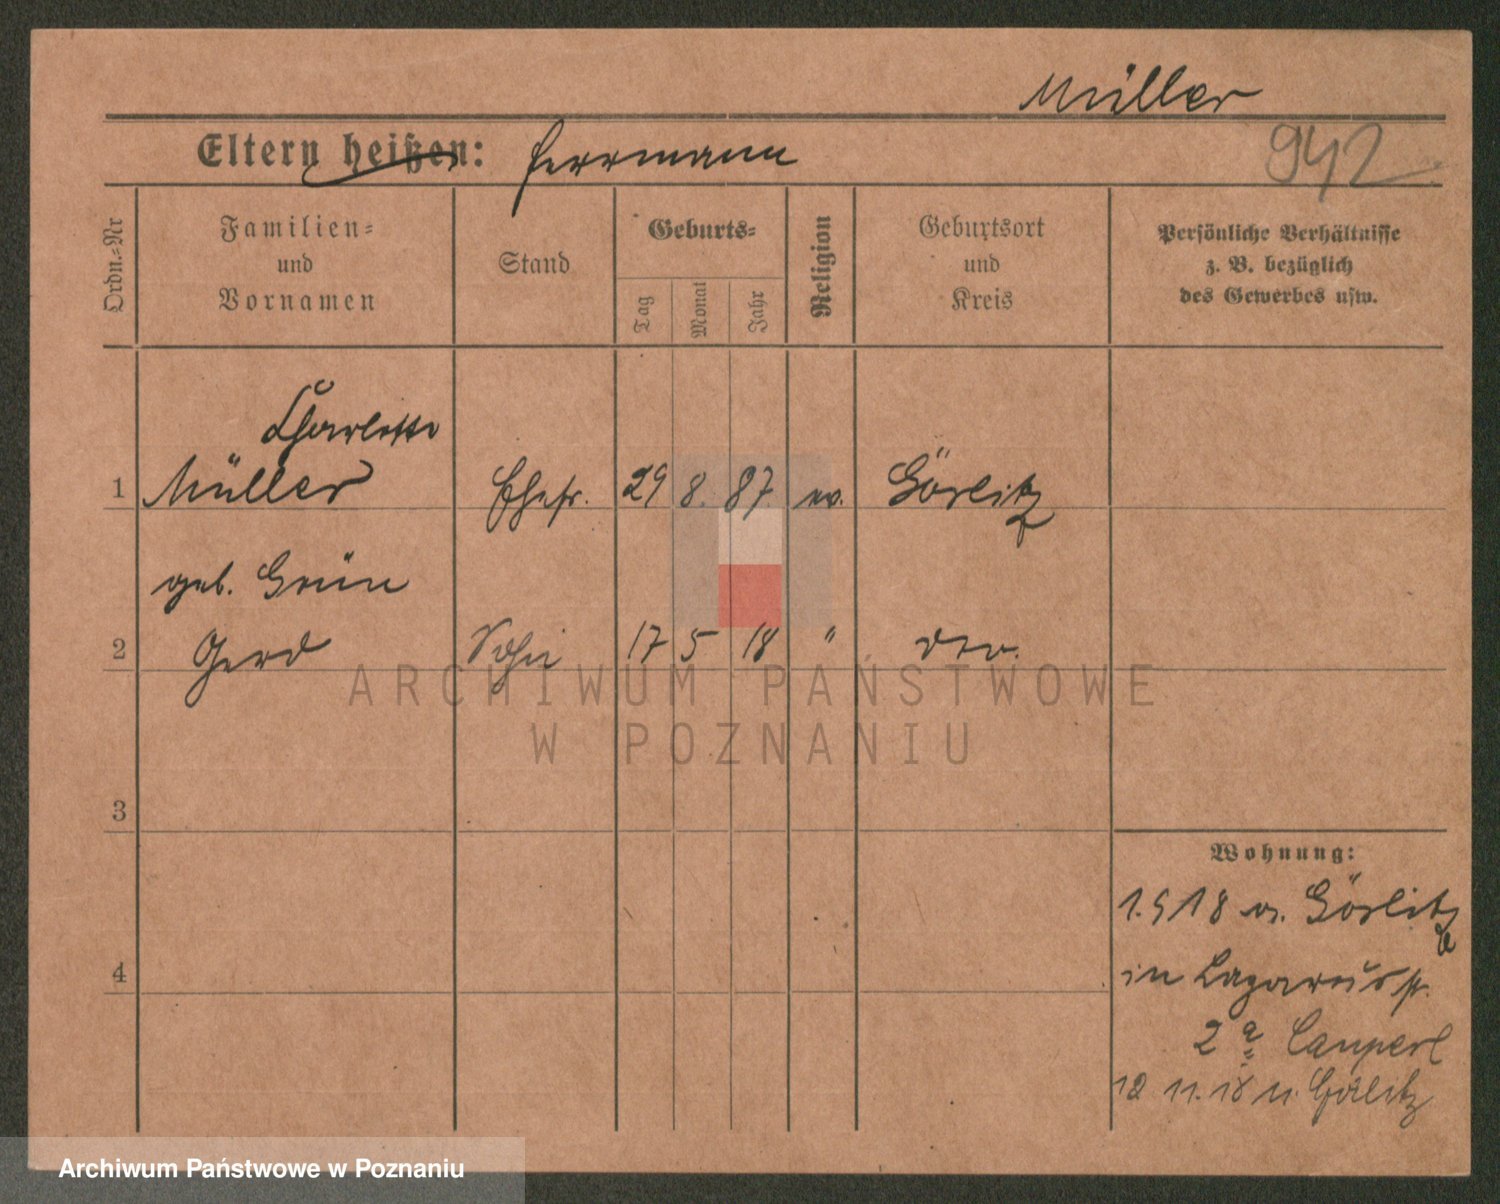 Müller
942
Eltern heißen: Herrmann
Ordn.-Nr
Familien-
und
Vornamen
Stand
Geburts-
Tag
Monat
Jahr
Religion
Geburtsort
und
Kreis
Persönliche Verhältnisse
z. B. bezüglich
des Gewerbes usw.
Charlotte
1 Müller Ehefr. 29 8. 87. ev. Görlitz
geb. Grün
2 Gerd Sohn 17 5 18 " dto.
3
4
Wohnung:
1.5 18 v. Görlitz
in Lazarusstr.
2 a
12 11. 18 n. Görlitz
ARCHIWUM PAŃSTWOWE
W POZNANIU
Archiwum Państwowe w Poznaniu